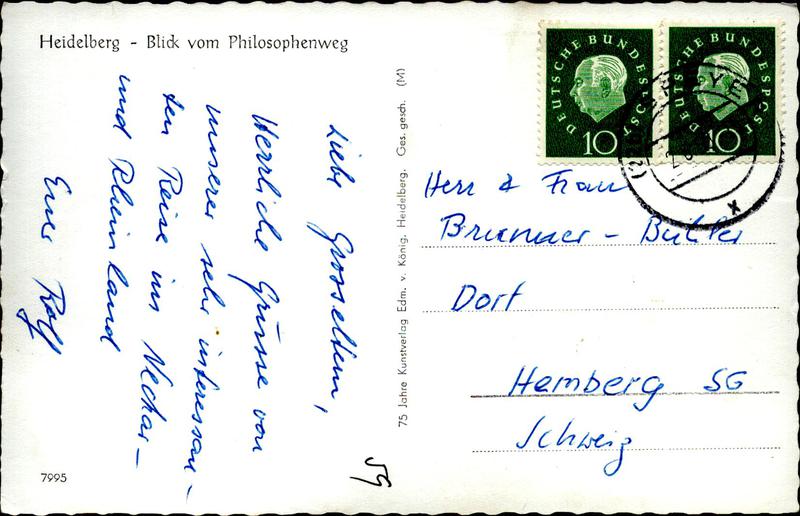 Heidelberg - Blick vom Philosophenweg
Liebe Grosseltern,
Herrliche Grüsse von
unserer sehr interessan-
ten Reise ins Neckar-
und Rheinland
Euer Rolf
7995
59
75 Jahre Kunstverlag Edm. v. König, Heidelberg. Ges. gesch. (M)
DEUTSCHE BUNDESPOST
10
DEUTSCHE BUNDESPOST
10
Herr & Frau
Brunner - Bühler
Dorf
Hemberg SG
Schweiz